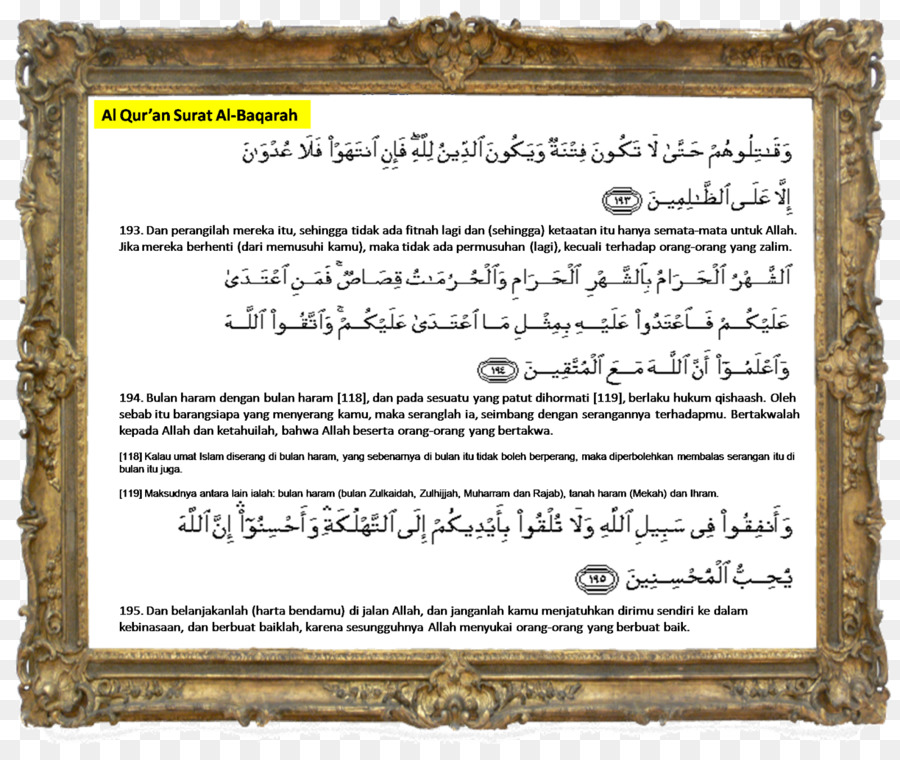 Al Qur'an Surat Al-Baqarah
وَقَـٰتِلُوهُمْ حَتَّىٰ لَا تَكُونَ فِتْنَةٌ وَيَكُونَ ٱلدِّينُ لِلَّهِ ۖ فَإِنِ ٱنتَهَوْا۟ فَلَا عُدْوَٰنَ
إِلَّا عَلَى ٱلظَّـٰلِمِينَ ١٩٣
193. Dan perangilah mereka itu, sehingga tidak ada fitnah lagi dan (sehingga) ketaatan itu hanya semata-mata untuk Allah.
Jika mereka berhenti (dari memusuhi kamu), maka tidak ada permusuhan (lagi), kecuali terhadap orang-orang yang zalim.
ٱلشَّهْرُ ٱلْحَرَامُ بِٱلشَّهْرِ ٱلْحَرَامِ وَٱلْحُرُمَـٰتُ قِصَاصٌ ۚ فَمَنِ ٱعْتَدَىٰ
عَلَيْكُمْ فَٱعْتَدُوا۟ عَلَيْهِ بِمِثْلِ مَا ٱعْتَدَىٰ عَلَيْكُمْ ۚ وَٱتَّقُوا۟ ٱللَّهَ
وَٱعْلَمُوٓا۟ أَنَّ ٱللَّهَ مَعَ ٱلْمُتَّقِينَ ١٩٤
194. Bulan haram dengan bulan haram [118], dan pada sesuatu yang patut dihormati [119], berlaku hukum qishaash. Oleh
sebab itu barangsiapa yang menyerang kamu, maka seranglah ia, seimbang dengan serangannya terhadapmu. Bertakwalah
kepada Allah dan ketahuilah, bahwa Allah beserta orang-orang yang bertakwa.
[118] Kalau umat Islam diserang di bulan haram, yang sebenarnya di bulan itu tidak boleh berperang, maka diperbolehkan membalas serangan itu di
bulan itu juga.
[119] Maksudnya antara lain ialah: bulan haram (bulan Zulkaidah, Zulhijjah, Muharram dan Rajab), tanah haram (Mekah) dan Ihram.
وَأَنفِقُوا۟ فِى سَبِيلِ ٱللَّهِ وَلَا تُلْقُوا۟ بِأَيْدِيكُمْ إِلَى ٱلتَّهْلُكَةِ ۛ وَأَحْسِنُوٓا۟ ۛ إِنَّ ٱللَّهَ
يُحِبُّ ٱلْمُحْسِنِينَ ١٩٥
195. Dan belanjakanlah (harta bendamu) di jalan Allah, dan janganlah kamu menjatuhkan dirimu sendiri ke dalam
kebinasaan, dan berbuat baiklah, karena sesungguhnya Allah menyukai orang-orang yang berbuat baik.